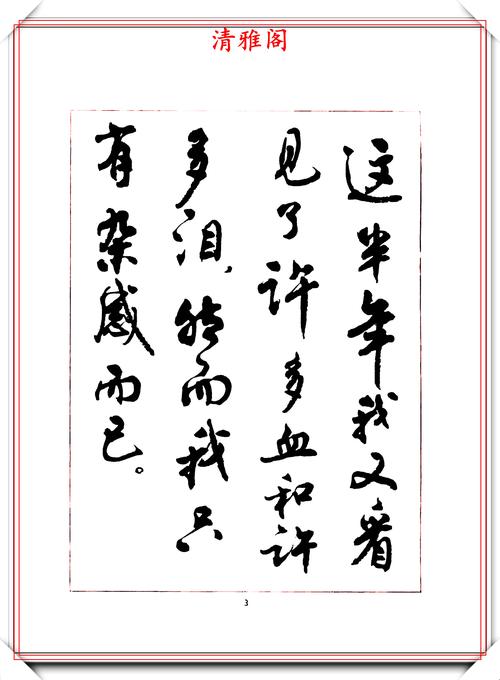 清雅阁
这半年我又看
见了许多血和许
多泪，然而我只
有杂感而已。
3